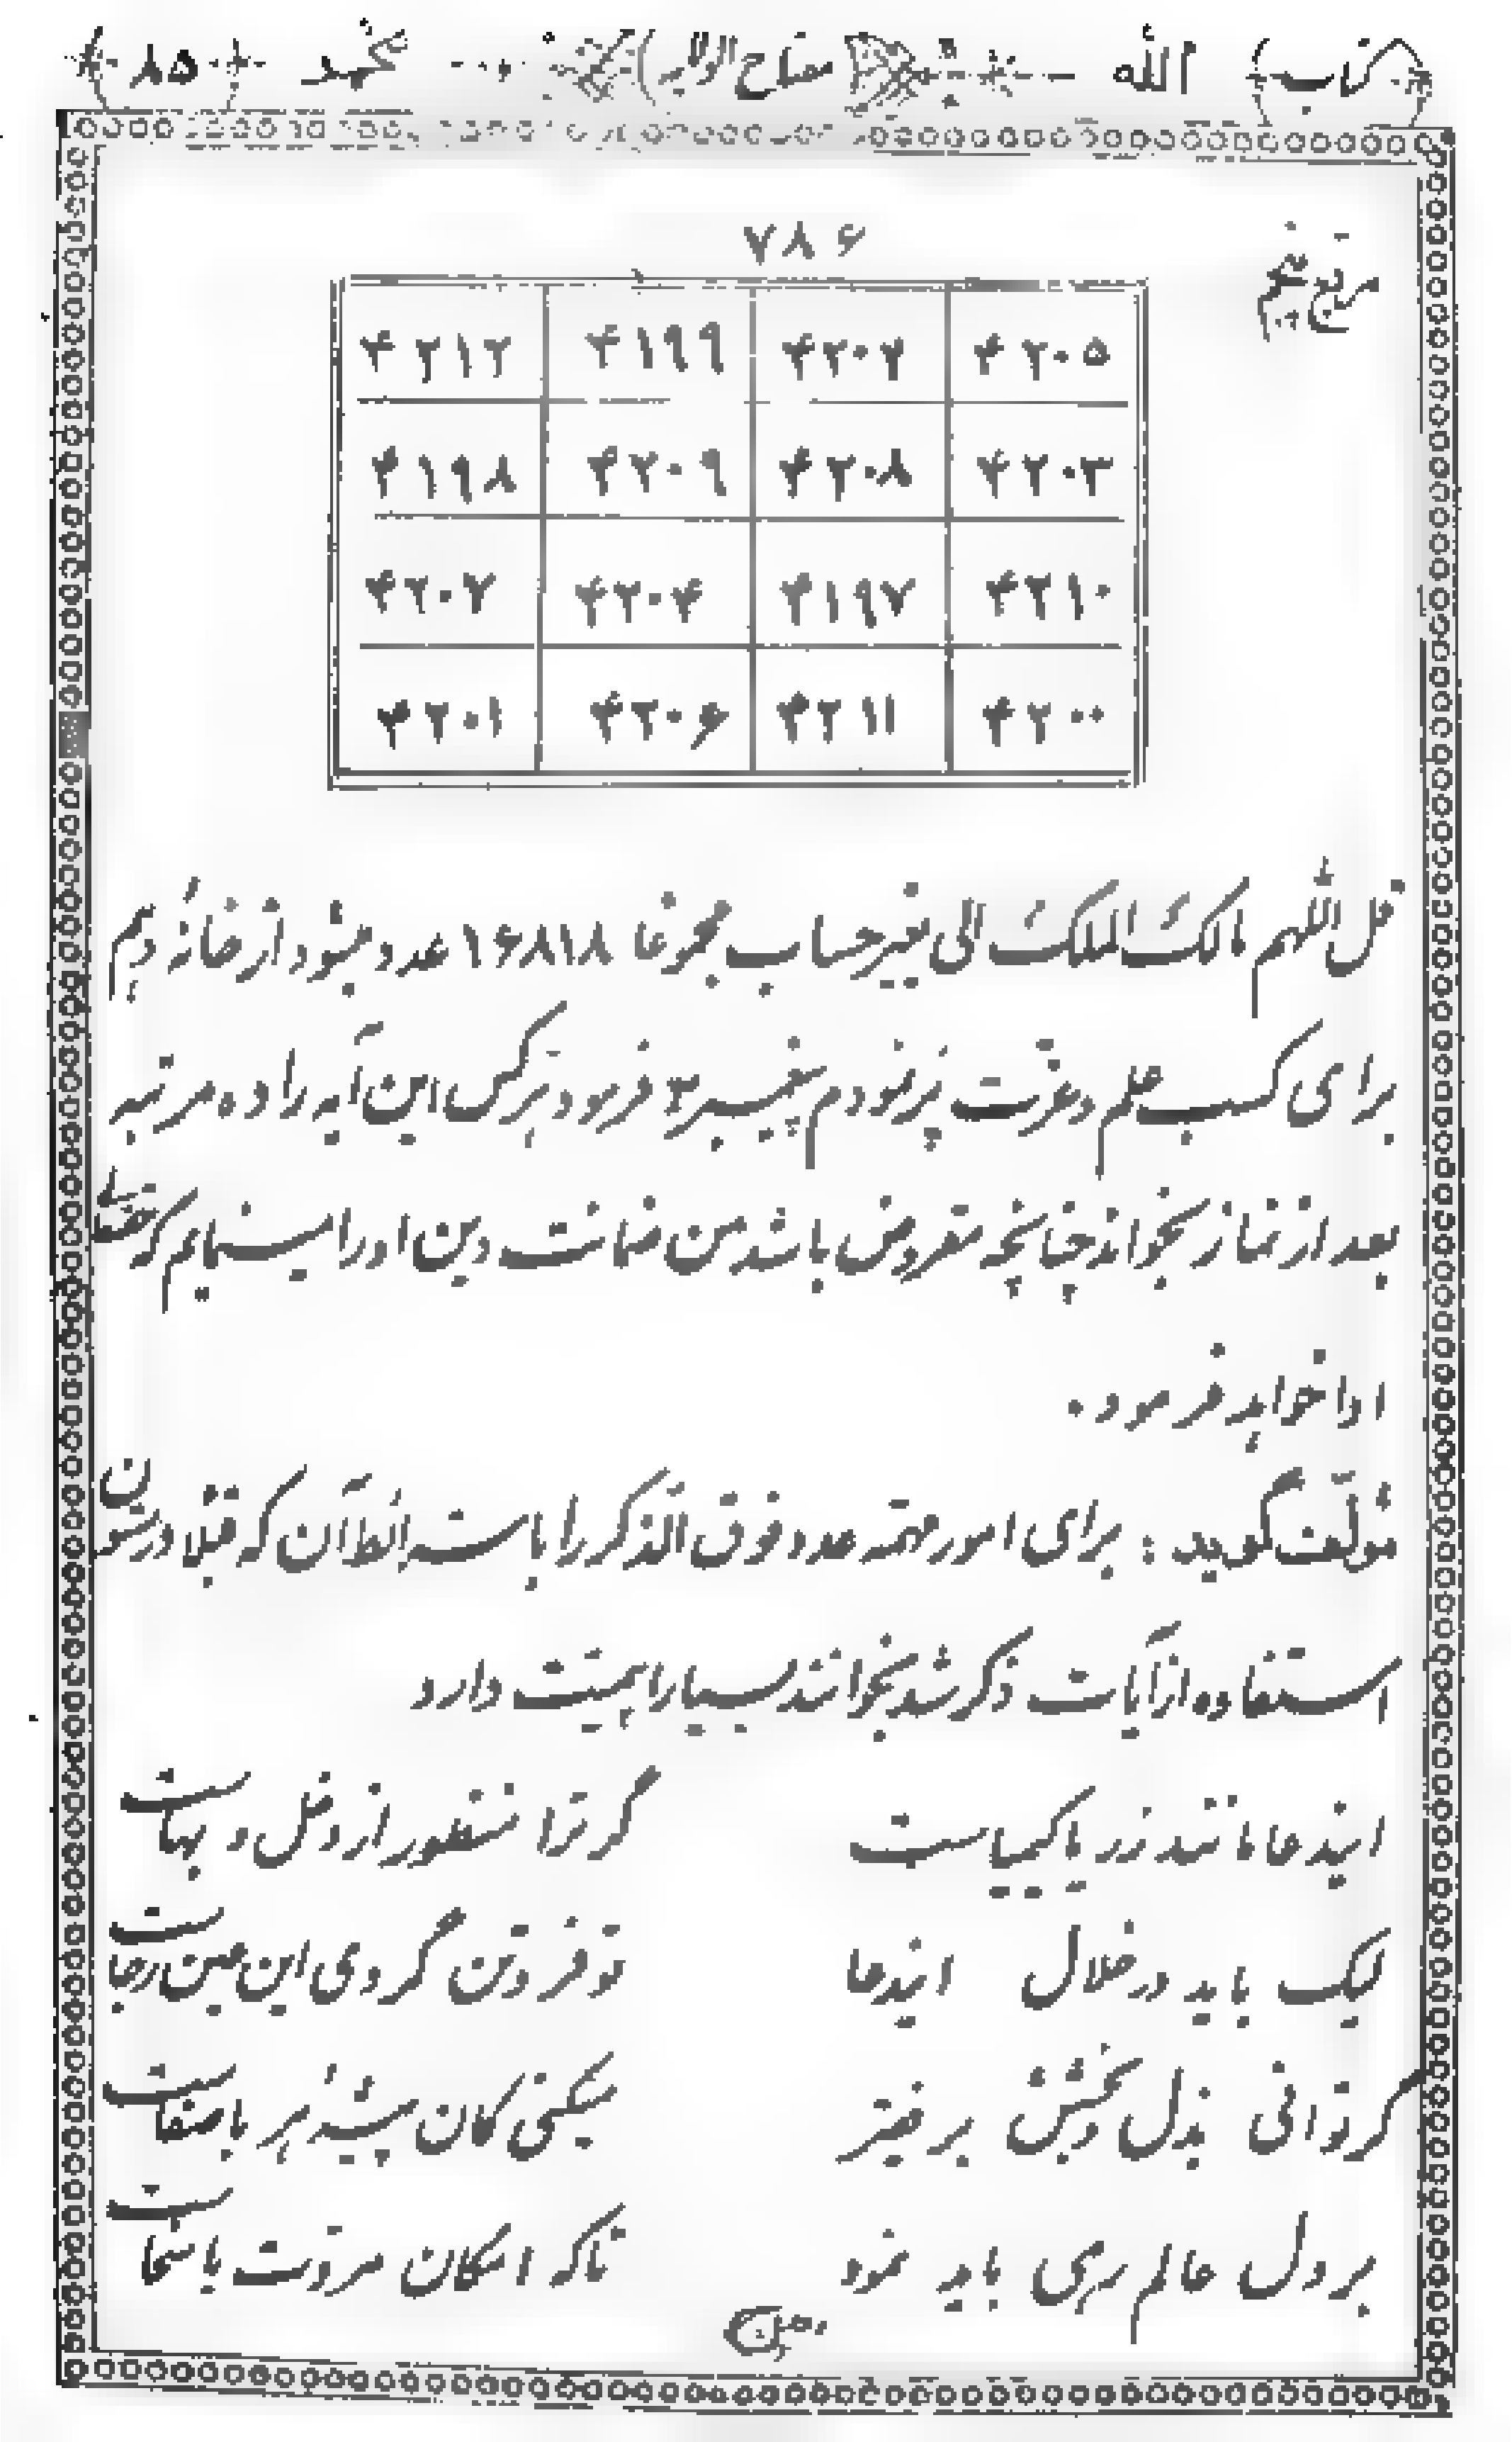 کتاب الله مفتاح الولایه محمد ۸۵
۷۸۶
مربع پنجم
۴۲۱۲ ۴۱۹۹ ۴۲۰۲ ۴۲۰۵
۴۱۹۸ ۴۲۰۹ ۴۲۰۸ ۴۲۰۳
۴۲۰۷ ۴۲۰۴ ۴۱۹۷ ۴۲۱۰
۴۲۰۱ ۴۲۰۶ ۴۲۱۱ ۴۲۰۰
قل اللهم مالک الملک الی بغیر حساب مجموعا ۱۶۸۱۸ عدد میشود از خانه دهم
برای کسب علم و عزت پر نمودم پیغمبر ص فرمود هرکس این آیه را ده مرتبه
بعد از نماز بخواند چنانچه مقروض باشد من ضمانت دین او را مینمایم که حقتعالی
ادا خواهد فرمود .
مؤلف گوید : برای امور مهمه عدد فوق الذکر را با سه شرائط آن که قبلا در
استفاده از آیات ذکر شد بخوانند بسیار اهمیت دارد
ایندعا مانند زر یا کیمیاست گر ترا منظور از دخل و بهاست
لیک باید در خلال ایندعا تو فروتن گردی این عین رجاست
گر توانی بذل و بخشش بر فقیر میکنی کان پیشه هر با صفاست
بر دل عالم رهی باید نمود تا که امکان مروت با شماست